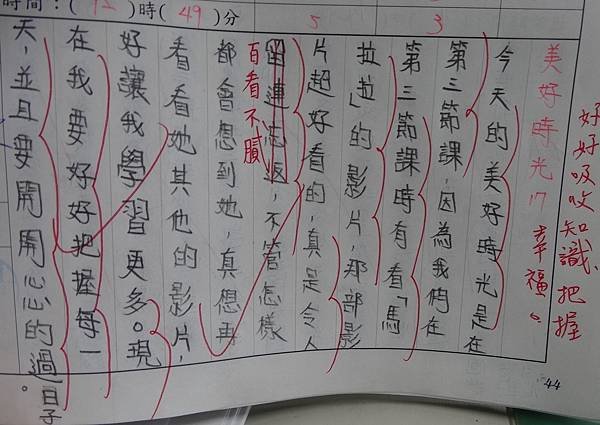 時間：(12)時(49)分
5
3
好好吸收知識、把握
幸福。
美好時光17
今天的美好時光是在
第三節課，因為我們在
第三節課時有看「馬
拉拉」的影片，那部影
片超好看的，真是令人
留連忘返，不管怎樣
百看不膩
都會想到她，真想再
看看她其他的影片，
好讓我學習更多。現
在我要好好把握每一
天，並且要開開心心的過日子。
44